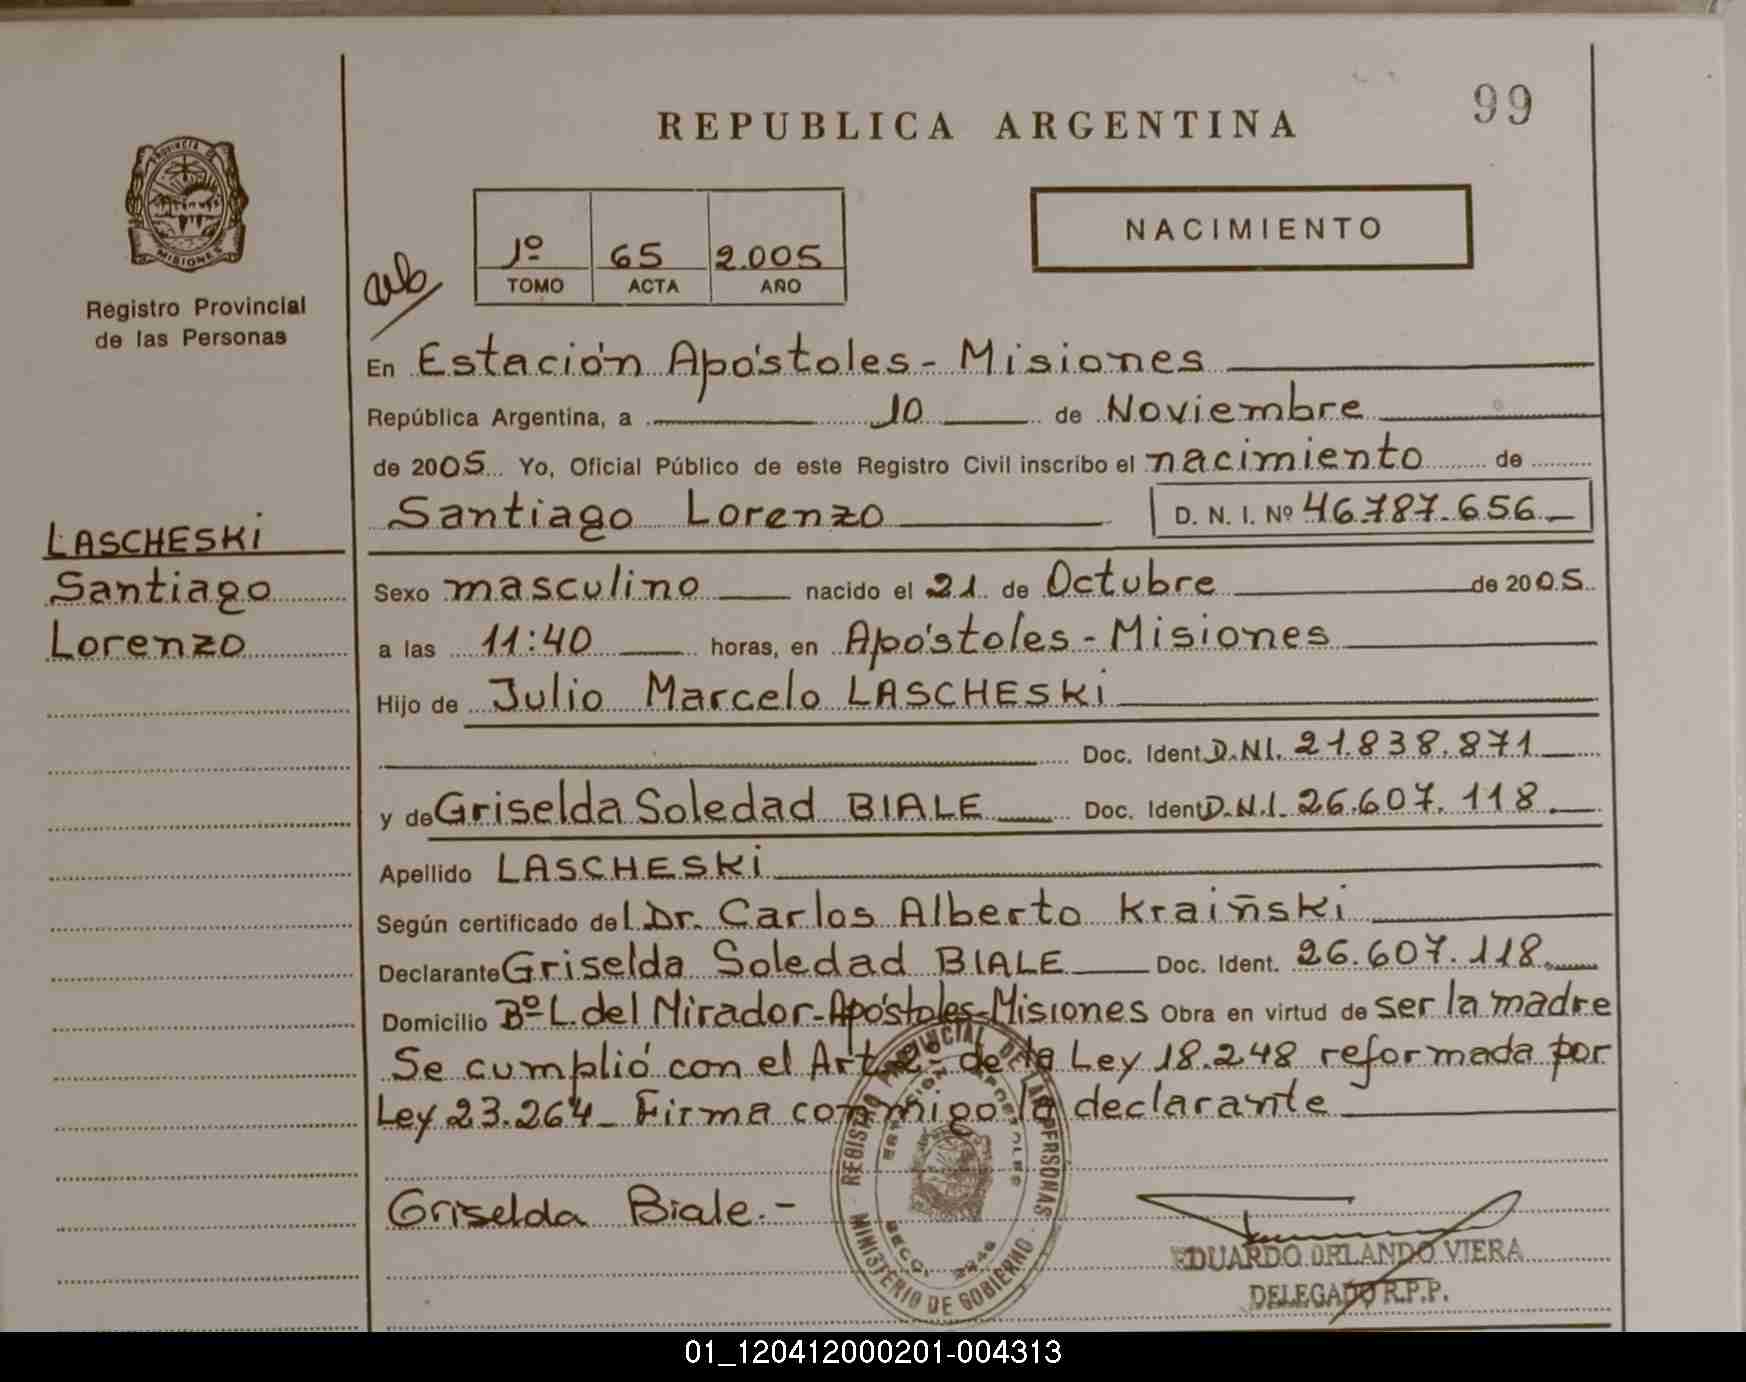 99
REPUBLICA ARGENTINA
PROVINCIA DE
MISIONES
Registro Provincial
de las Personas
NACIMIENTO
1º 65 2.005
TOMO ACTA AÑO
En Estación Apóstoles - Misiones
República Argentina, a 10 de Noviembre
de 2005 Yo, Oficial Público de este Registro Civil inscribo el nacimiento de
Santiago Lorenzo D. N. I. Nº 46.787.656
LASCHESKi
Santiago
Lorenzo
Sexo masculino nacido el 21 de Octubre de 2005
a las 11:40 horas, en Apóstoles - Misiones
Hijo de Julio Marcelo LASCHESKi
Doc. Ident. D.N.I. 21.838.871
y de Griselda Soledad BIALE Doc. Ident D.N.I. 26.607.118.
Apellido LASCHESKi
Según certificado del Dr. Carlos Alberto Kraiñski
Declarante Griselda Soledad BIALE Doc. Ident. 26.607.118.
Domicilio Bº L. del Mirador - Apóstoles - Misiones Obra en virtud de ser la madre
Se cumplió con el Art. de la Ley 18.248 reformada por
Ley 23.264 - Firma conmigo la declarante
Griselda Biale.-
REGISTRO PROVINCIAL DE LAS PERSONAS
MINISTERIO DE GOBIERNO
ESTACION APOSTOLES
SECC.
EDUARDO ORLANDO VIERA
DELEGADO R.P.P.
01_120412000201-004313